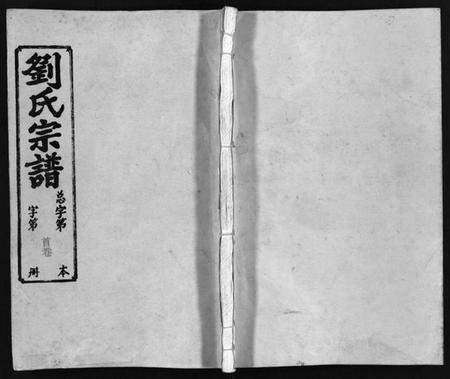 劉氏宗譜
总字第
本
字第
首卷
册